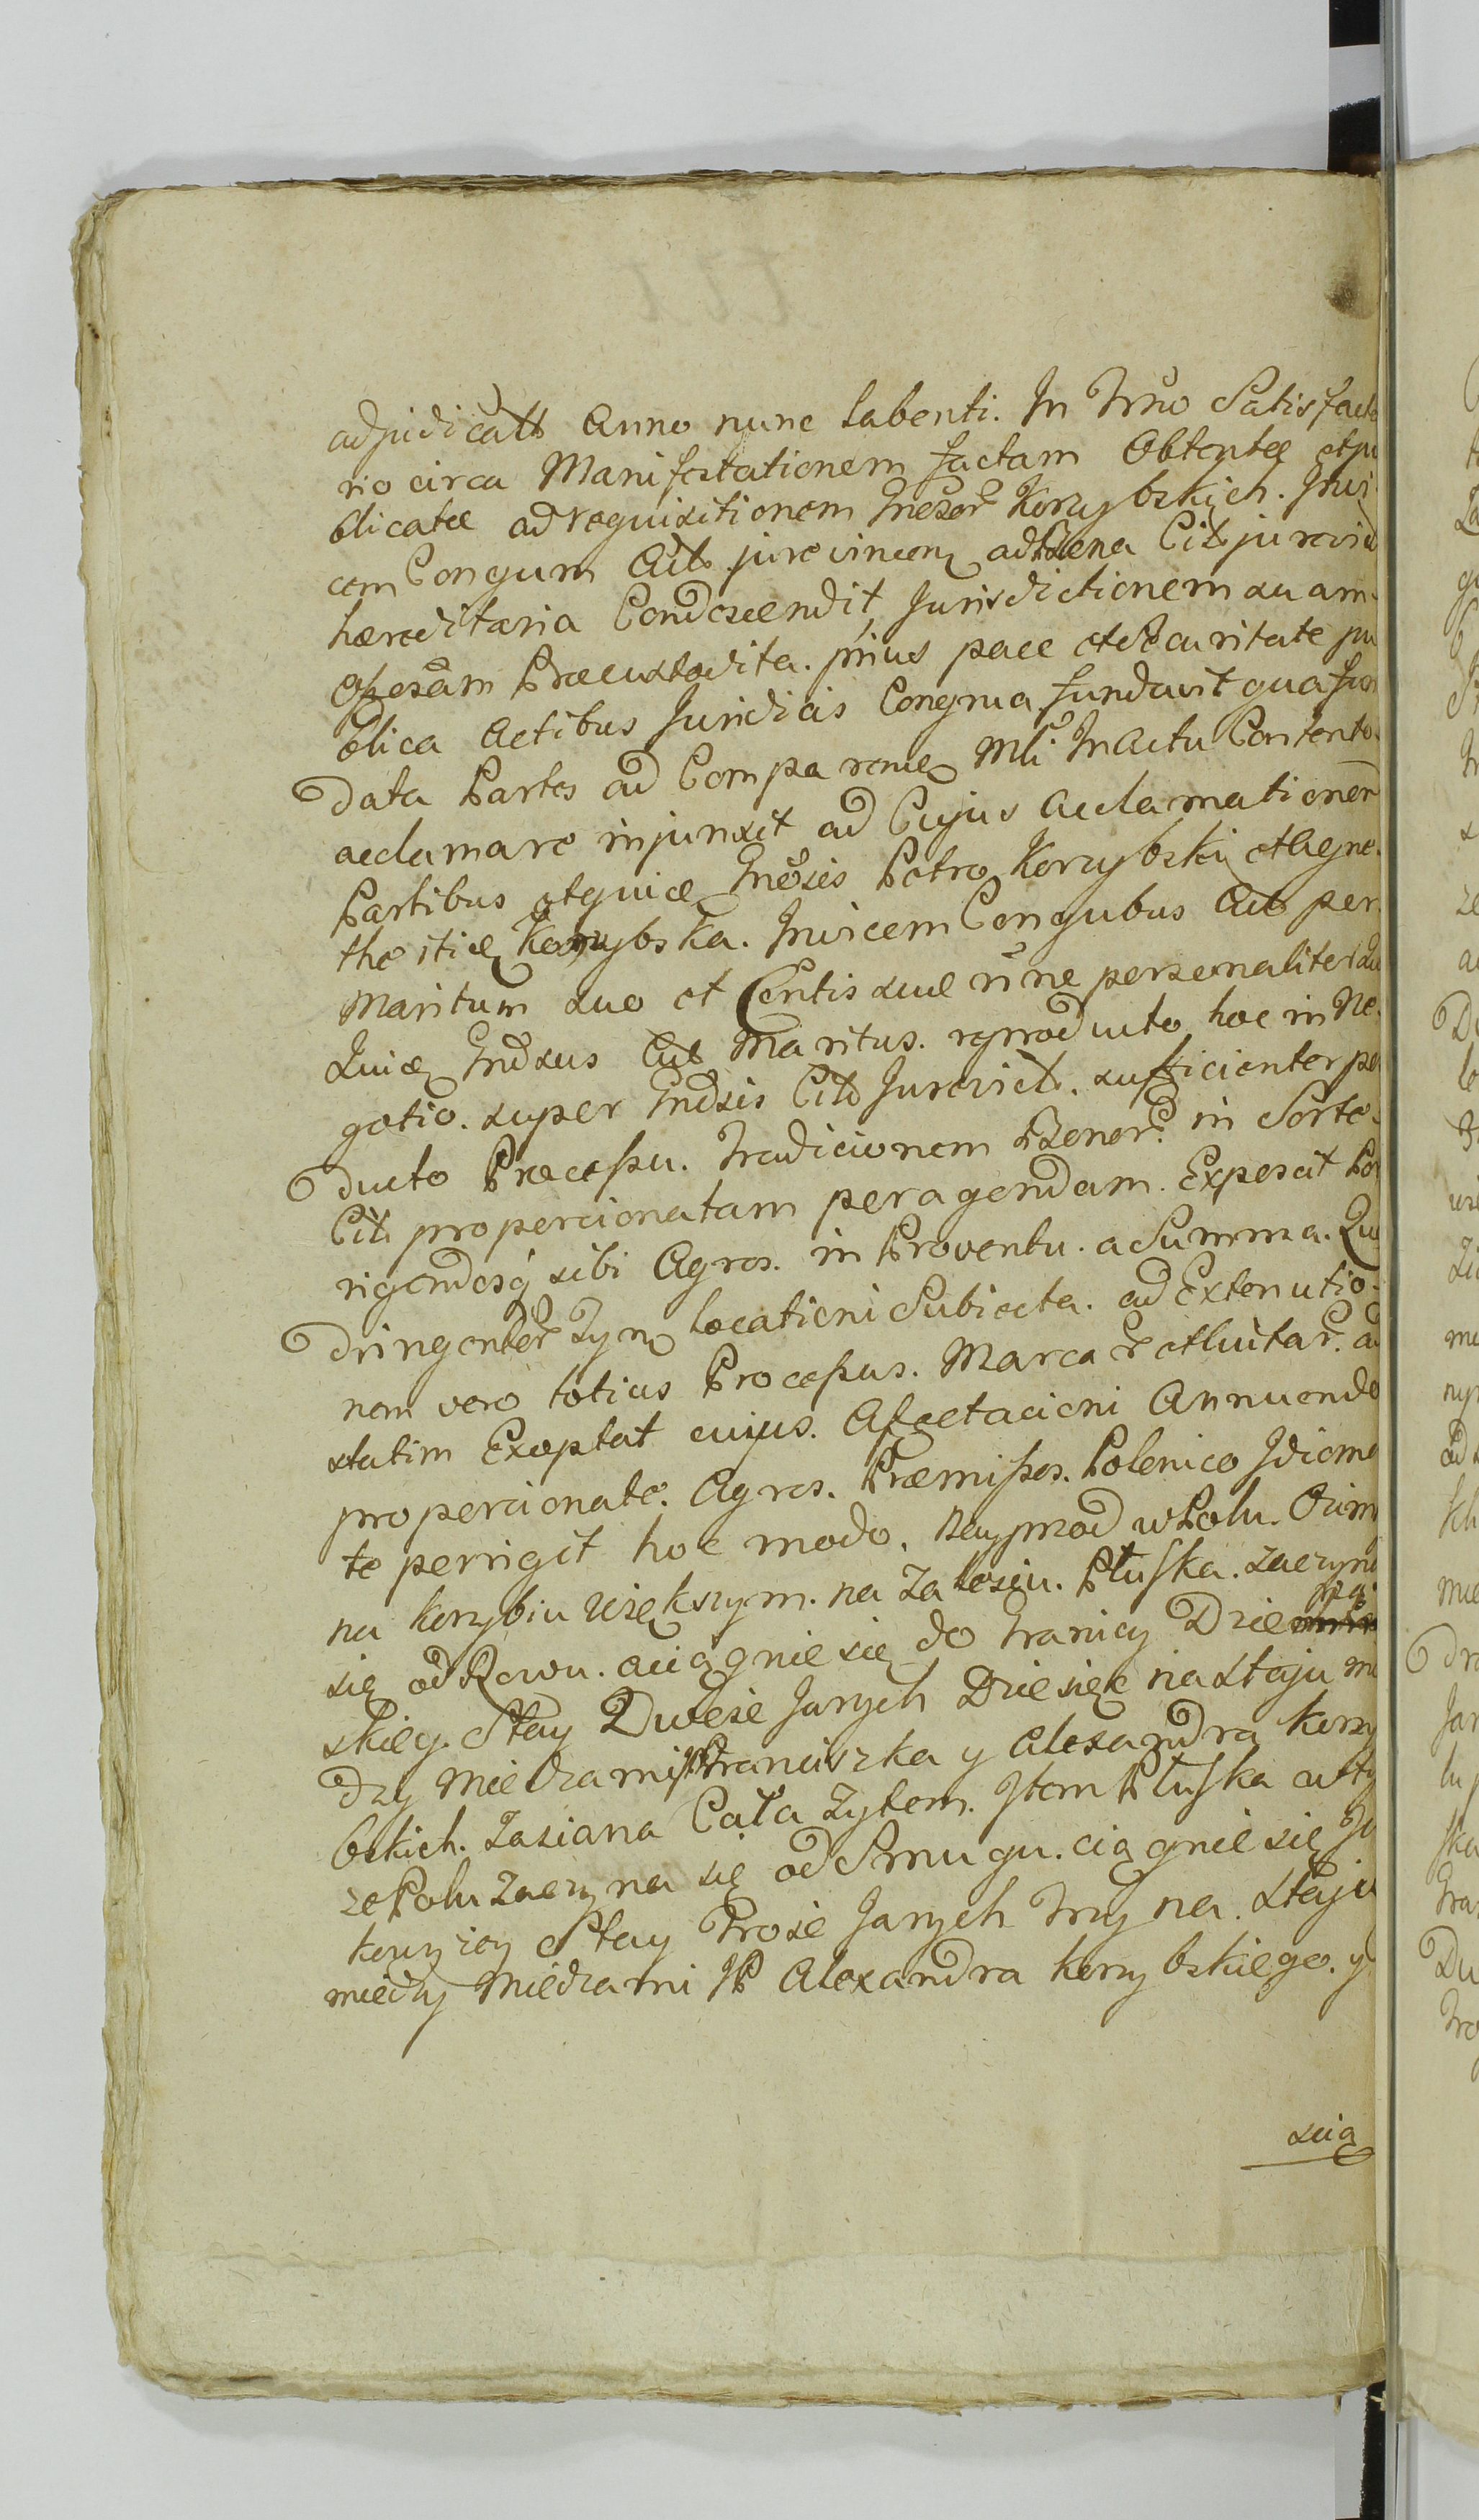 adjudicatt Anno nunc labenti. In Trno Satisfacto
rio circa Manifestationem factam Obtentee et pu
blicatee ad requisitionem Gnesor Korzybskich. Invi
cem Congum Act jurevincen ad Bona Citt jurevict
hæreditaria Condescendit, Jurisdictionem suam
Ofzosam Præcustodita. prius pace et securitate pu
blica actibus Juridicis Congrua fundavit qua fun
data Partes ad Comparenue Mli In Actu Contento
acclamare injunxit ad Cujus acclamationem
Partibus utquice Gnesis Petro Korzybski et Agne
the itiæ Korzybska. Invicem Congubus Act per
Maritum suo et Centis suæ nne personaliter su
Quiæ Gndsus Act Maritus. reproducto hoc in Ne
gotio. super Gndsis Citt Jurevict. sufficienter pe
ducto Processu. Tradicionem Bonor. in Sorte
Citt propercionatam peragendam. Exposcit Por
rigendosq sibi Agros. in Proventu. a Summa. Qua
dringenter Zyn locationi Subiecta. ad Extenutio
nem vero totius Processus. Marcar et luitar. ad
statim Exoptat cuius. Affectacioni Annuendo
propercionate. Agros. Præmissos. Polonico Idioma
te perrigit hoc modo. Nayprzod w Polu. Ozim
na Korzybiu większym. na Zalesiu. Płuska. zaczyna
się od Rowu. a ciągnie się do Granicy Dzie
skieg. Stay Dwoie Jarych Dziesięć na staju mi
dzy Miedzami JP Franciszka y Alexandra Korzy
bskich. Zasiana Cała Zytem. Item Płuska w ty
ze Polu zaczyna się od Smugu. ciągnie się Ja
kowyzey Stay Troie Jarych Trzy na. staju
miedzy Miedzami JP Alexandra Korzybskiego. y
scią